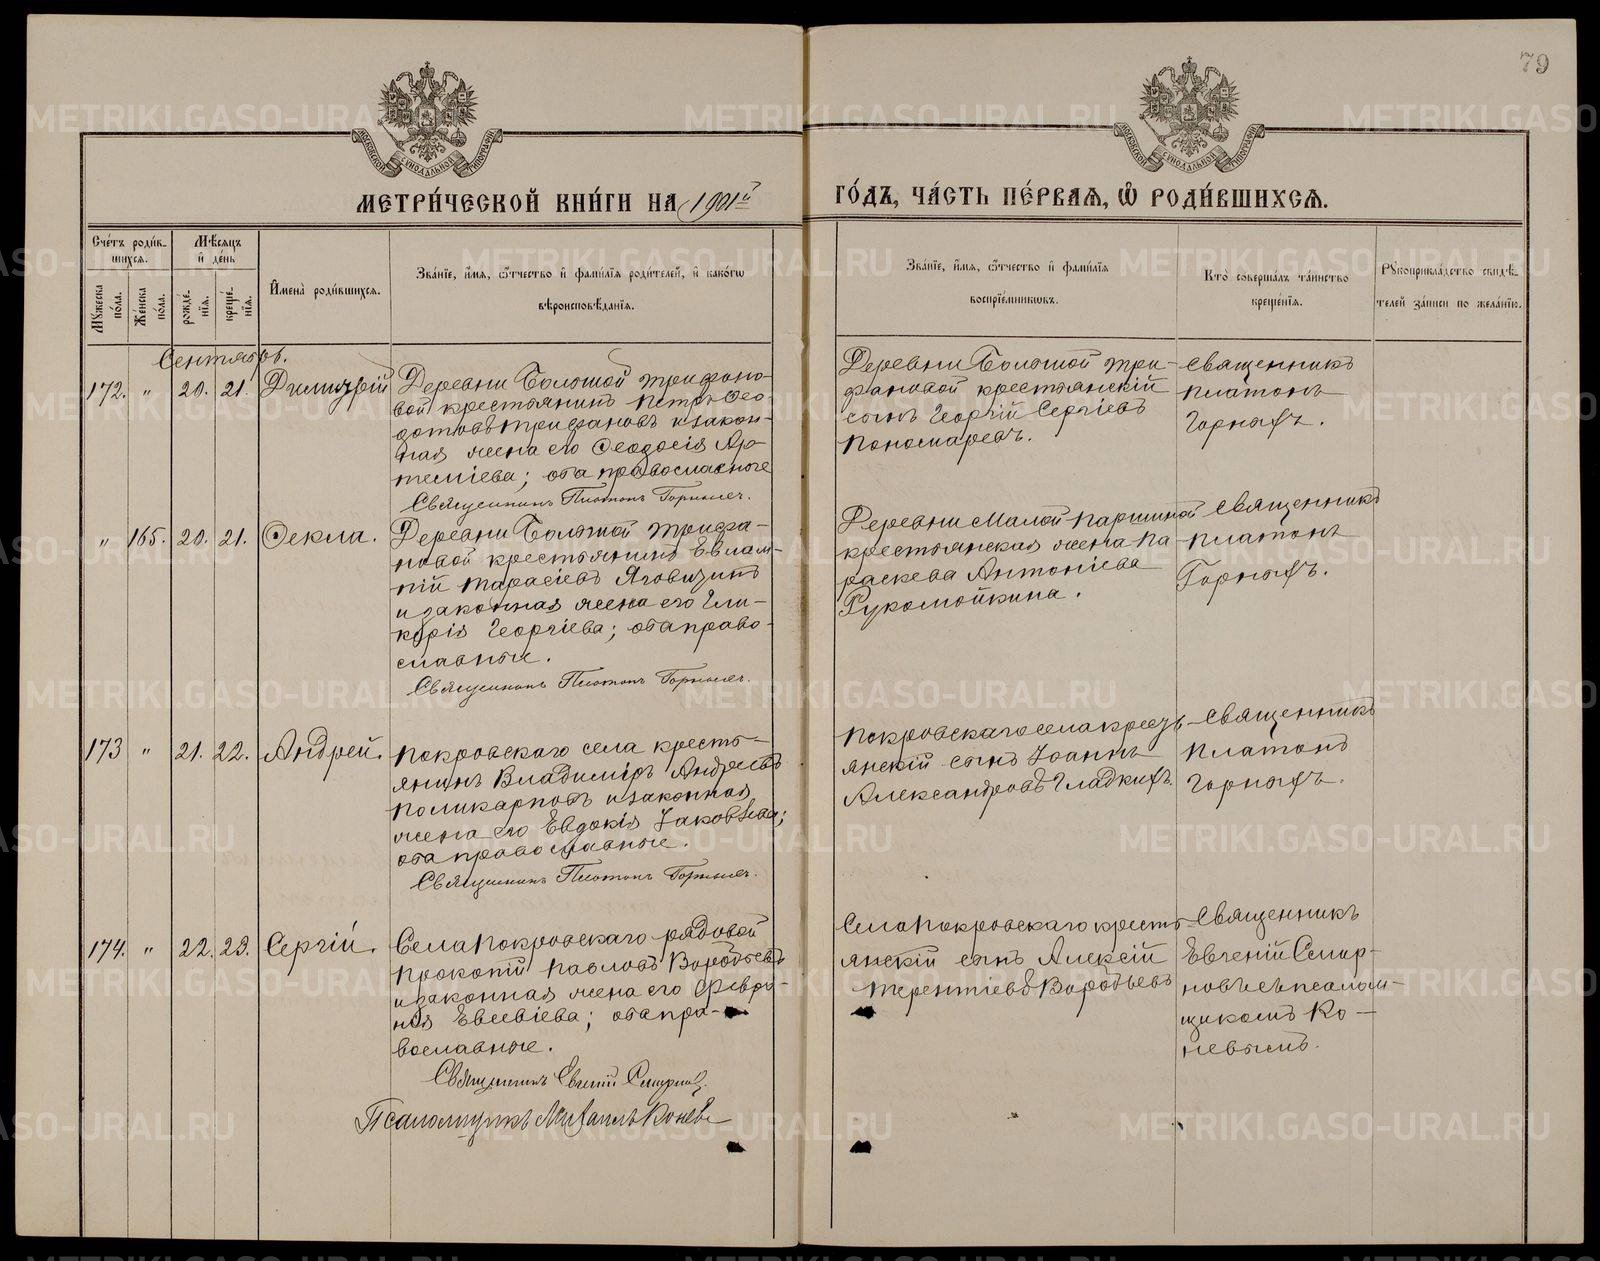 79
МЕТРИ́ЧЕСКОЙ КНИ́ГИ НА 1901й
ГО́ДЪ, ЧА́СТЬ ПЕ́РВАѦ, Ѡ҆ РОДИ́ВШИХСѦ.
Сче́тъ роди́в-
шихсѧ.
Мѣ́сѧцъ
и҆ де́нь
Мꙋ́жеска по́ла.
Же́нска по́ла.
рожде́-нїѧ.
креще́-нїѧ.
И҆мена̀ роди́вшихсѧ.
Зва́нїе, и҆́мѧ, ѻ҆́тчество и҆ фами́лїѧ роди́телей, и҆ како́гѡ
вѣроисповѣ́данїѧ.
Зва́нїе, и҆́мѧ, ѻ҆́тчество и҆ фами́лїѧ
воспрїе́мникѡвъ.
Кто̀ соверша́лъ та́инство
креще́нїѧ.
Рꙋкоприкла́дство свидѣ́-
телей за́писи по жела́нїю.
Сентябрь.
172. " 20. 21. Димитрій
Деревни Большой Трифоно-
вой крестьянинъ Петръ Ѳео-
дотовъ Трифановъ и закон-
ная жена его Ѳеодосія Ар-
теміева; оба православные
Священникъ Платонъ Горныхъ.
Деревни Большой Три-
фановой крестьянскій
сынъ Георгій Сергіевъ
Пономаревъ.
Священникъ
Платонъ
Горныхъ.
" 165. 20. 21. Ѳекла.
Деревни Большой Трифа-
новой крестьянинъ Евлам-
пій Тарасіевъ Яговитинъ
и законная жена его Гли-
керія Георгіева; оба право-
славные.
Священникъ Платонъ Горныхъ.
Деревни Малой Паршиной
крестьянская жена Па-
раскева Антоніева
Рукомойкина.
Священникъ
Платонъ
Горныхъ.
173 " 21. 22. Андрей.
Покровскаго села кресть-
янинъ Владиміръ Андреевъ
Поликарповъ и законная
жена его Евдокія Іаковлева;
оба православные.
Священникъ Платонъ Горныхъ.
Покровскаго села кресть-
янскій сынъ Іоаннъ
Александровъ Гладкихъ.
Священникъ
Платонъ
Горныхъ.
174. " 22. 23. Сергій.
Села Покровскаго рядовой
Прокопій Павловъ Воробьевъ
и законная жена его Февро-
нія Евсевіева; оба пра-
вославные.
Священникъ Евгеній Смирновъ.
Псаломщикъ Михаилъ Коневъ
Села Покровскаго кресть-
янскій сынъ Алексій
Терентіевъ Воробьевъ
Священникъ
Евгеній Смир-
новъ съ псалом-
щикомъ Ко-
невымъ.
METRIKI.GASO-URAL.RU